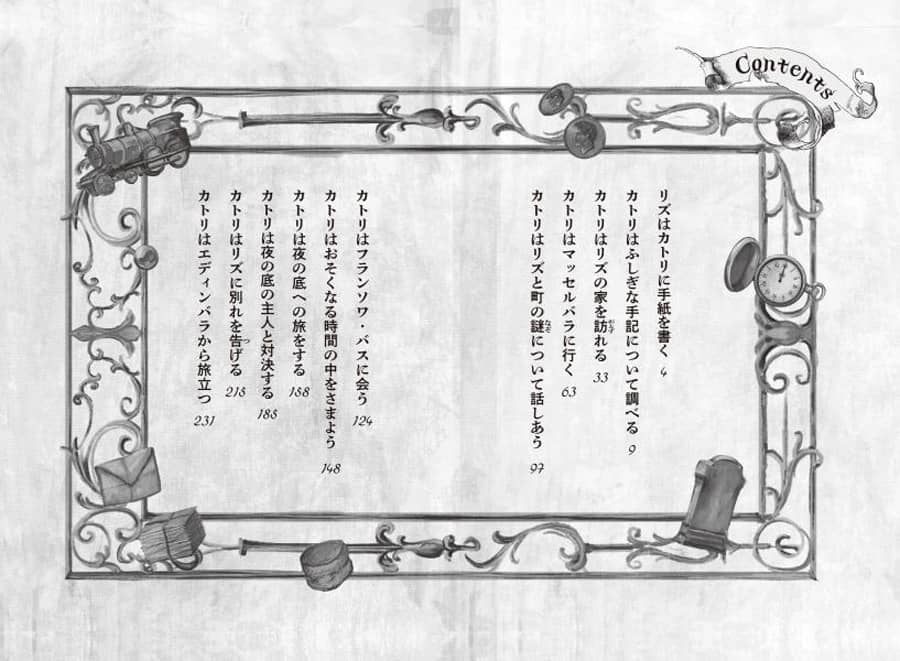 Contents
リズはカトリに手紙を書く 4
カトリはふしぎな手記について調べる 9
カトリはリズの家を訪れる 33
カトリはマッセルバラに行く 63
カトリはリズと町の謎について話しあう 97
カトリはフランソワ・バスに会う 124
カトリはおそくなる時間の中をさまよう 148
カトリは夜の底への旅をする 158
カトリは夜の底の主人と対決する 188
カトリはリズに別れを告げる 218
カトリはエディンバラから旅立つ 231